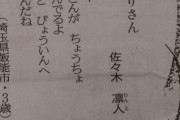 りさん
佐々木 凛人
さんが ちょうちょ
んでるよ
と びょういんへ
んだね
(埼玉県飯能市・3歳